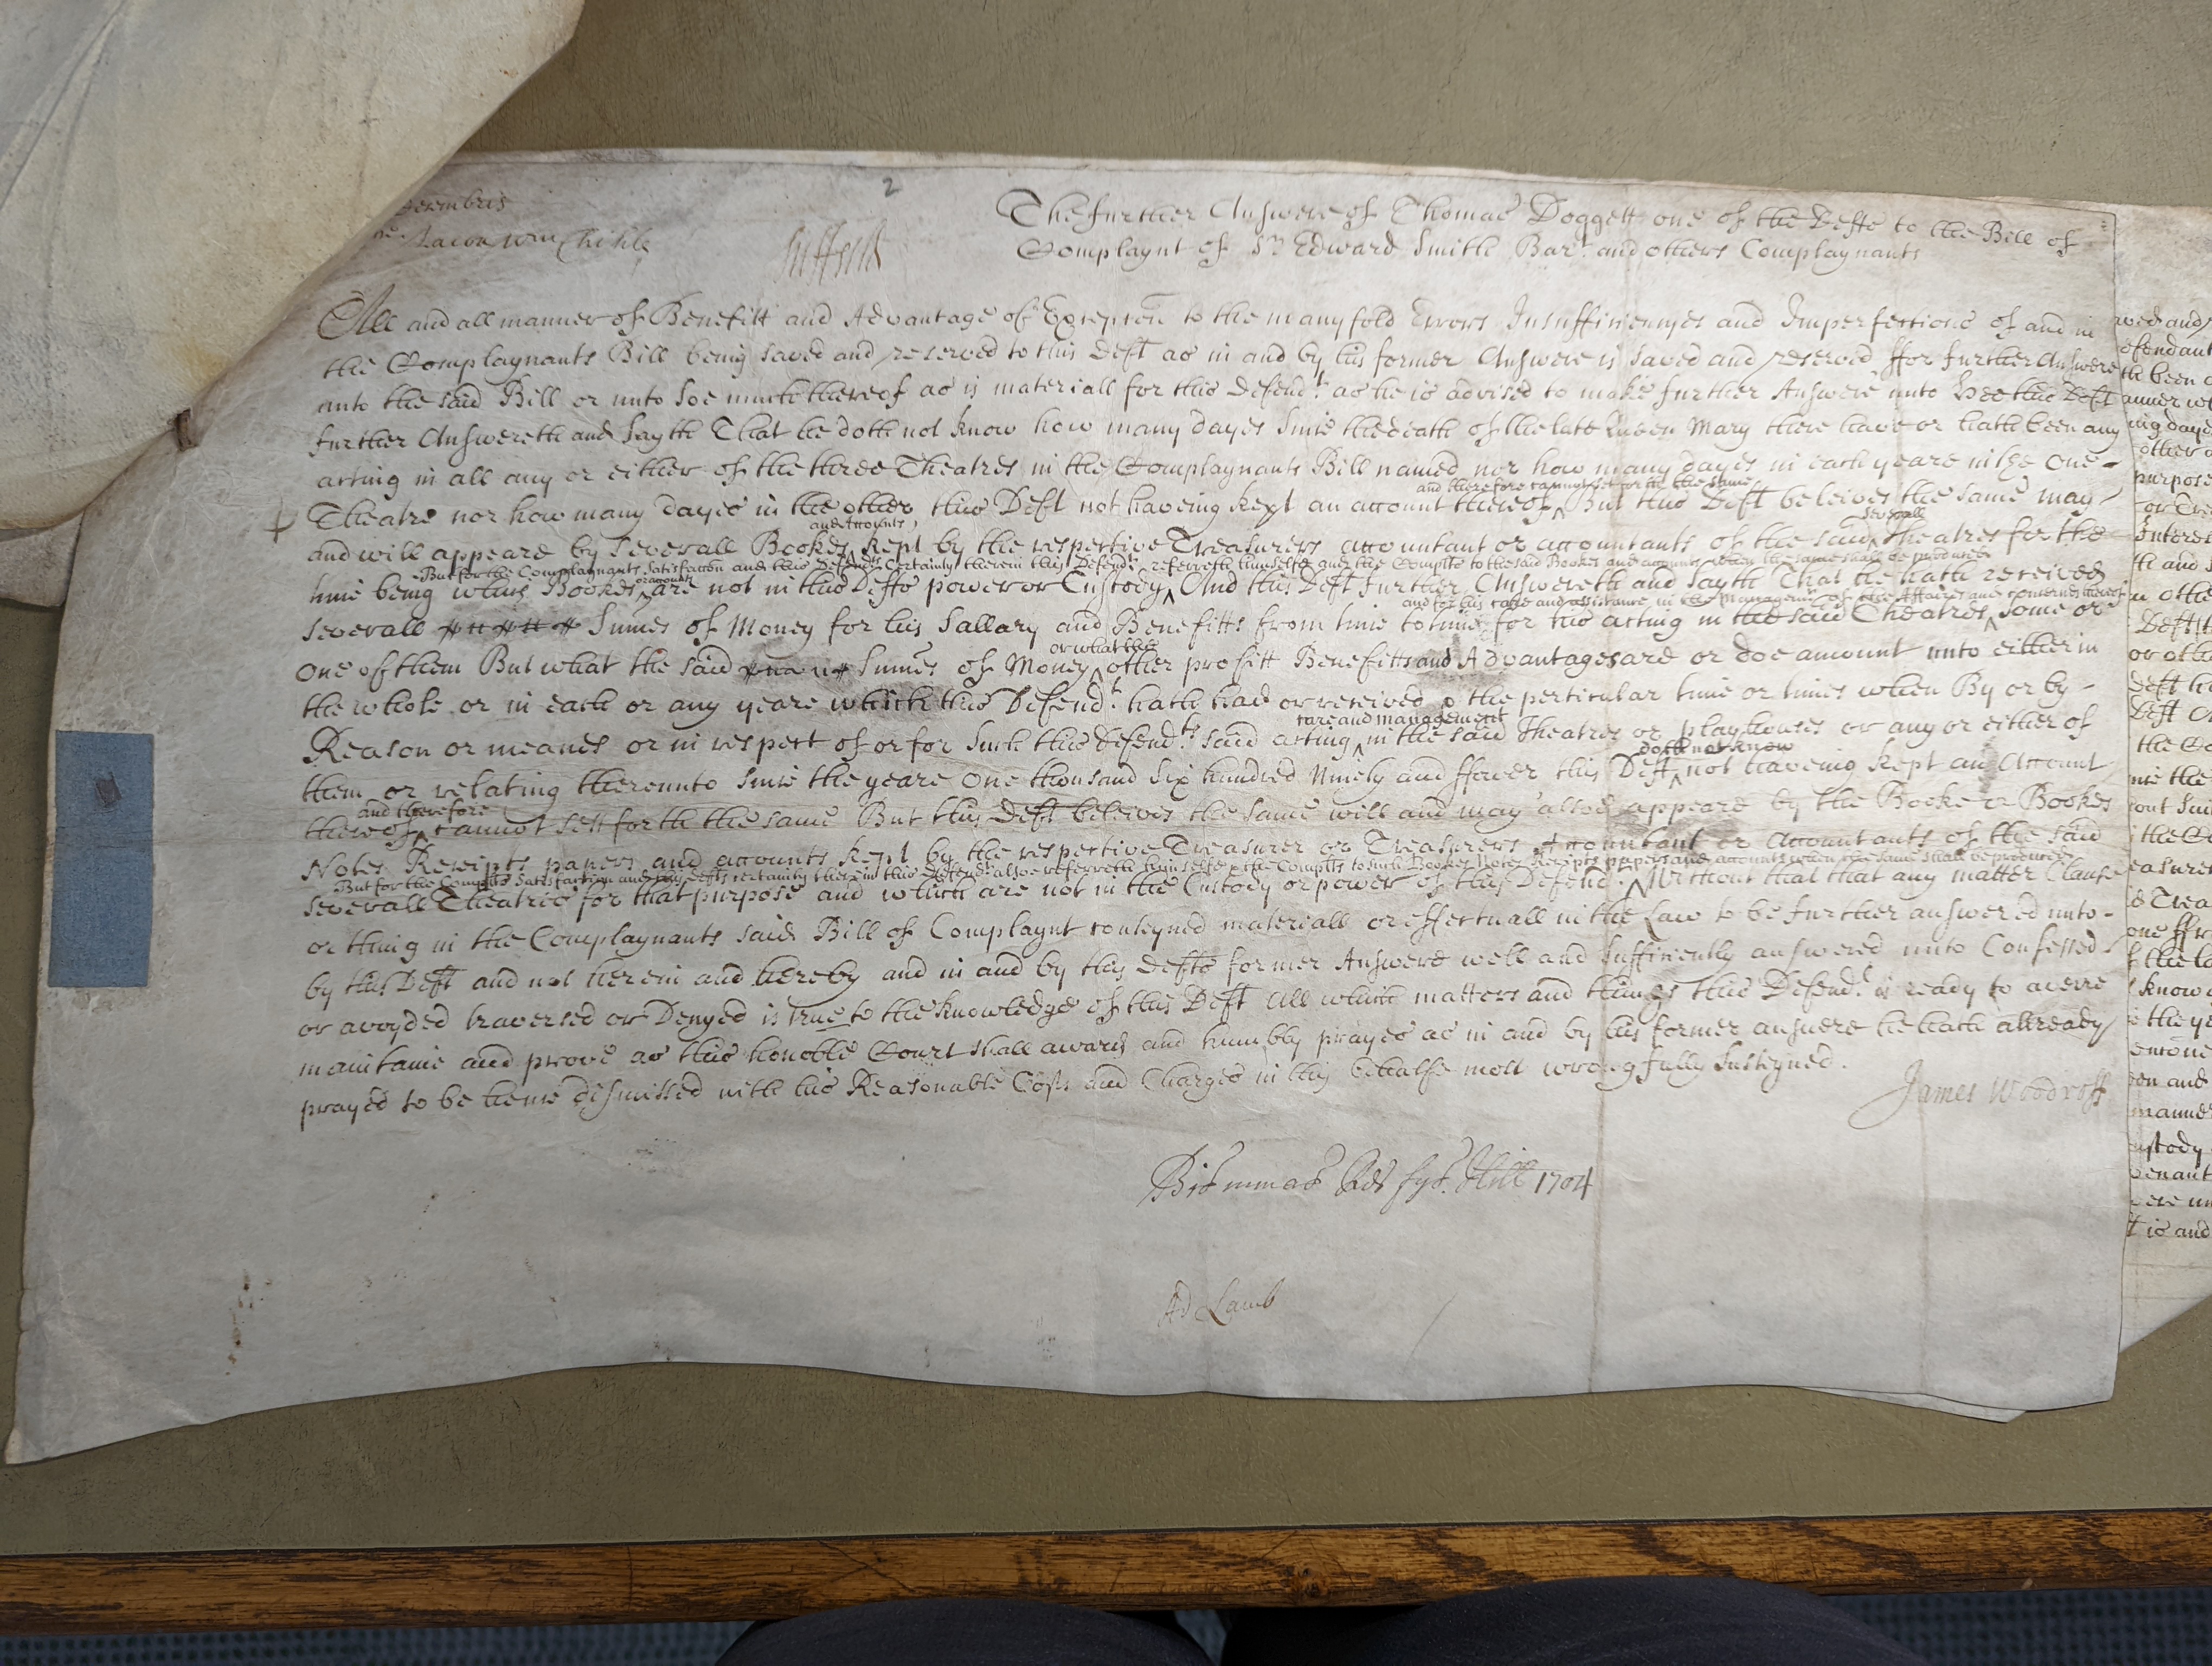 2
The further Answere of Thomas Doggett one of the Defts to the Bill of
Complaynt of Sr. Edward Smith Bart. and others Complaynants
All and all manner of Benefitt and Advantage of Excepcon to the manyfold Errors Insufficiencyes and Imperfections of and in
the Complaynants Bill being saved and reserved to this Deft as in and by his former Answere is saved and reserved ffor further Answere
unto the said Bill or unto soe much thereof as is materiall for this Defendt. as he is advised to make further Answere unto Hee this Deft
further Answereth and Sayth That he doth not know how many dayes since the death of the late Queen Mary there have or hath been any
acting in all any or either of the three Theatres in the Complaynants Bill named nor how many dayes in each yeare in the one
and therefore cannot set forth the same
Theatre nor how many dayes in the other this Deft not haveing kept an account thereof But this Deft beleives the same may
and Accounts severall
and will appeare by severall Bookes kept by the respective Treasurers accountant or accountants of the said Theatres for the
But for the Complaynants Satisfaccon and this Defendts Certainty therein this Defendt. referreth himselfe and the Complts to the said Bookes and accounts when the same shall be produced
or accounts
time being which Bookes are not in this Defts power or Custody And this Deft further Answereth and sayth That he hath received
and for his care and assistance in the Managemt. of the Affaires and concernes thereof
severall Summes of Money for his Sallary and Benefitts from time to time for his acting in the said Theatres some or
or what the
one of them But what the said Summes of Money other profitt Benefitts and Advantages are or doe amount unto either in
the whole or in each or any yeare which this Defendt. hath had or received the perticular time or times when By or by
care and management
Reason or meanes or in respect of or for such this defendts. said acting in the said Theatres or playhouses or any or either of
doth not know
them or relating thereunto since the yeare One thousand Six hundred Ninety and ffower this Deft not haveing kept an Account
and therefore
thereof cannot sett forth the same But this Deft beleives the same will and may alsoe appeare by the Booke or Bookes
Notes Receipts papers and accounts kept by the respective Treasurer or Treasurers Accountant or Accountants of the said
But for the Complts Satisfaction and this Defts certainty therein this Defendt alsoe referreth himselfe the Complts to such Bookes Notes Receipts papers and accounts when the same shall be produced
severall Theatres for that purpose and which are not in the Custody or power of this Defendt. Without that that any matter Clause
or thing in the Complaynants said Bill of Complaynt conteyned materiall or effectuall in the Law to be further answered unto
by this Deft and not herein and hereby and in and by this Defts former Answere well and sufficiently answered unto Confessed
or avoyded traversed or Denyed is true to the knowledge of this Deft All which matters and things this Defendt. is ready to averre
maintaine and prove as this honoble Court shall award and humbly prayes as in and by his former answere he hath allready
prayed to be hence dismissed with his Reasonable Costs and Charges in this behalfe most wrongfully susteyned.
James Woodroff
1704
Ad Lamb